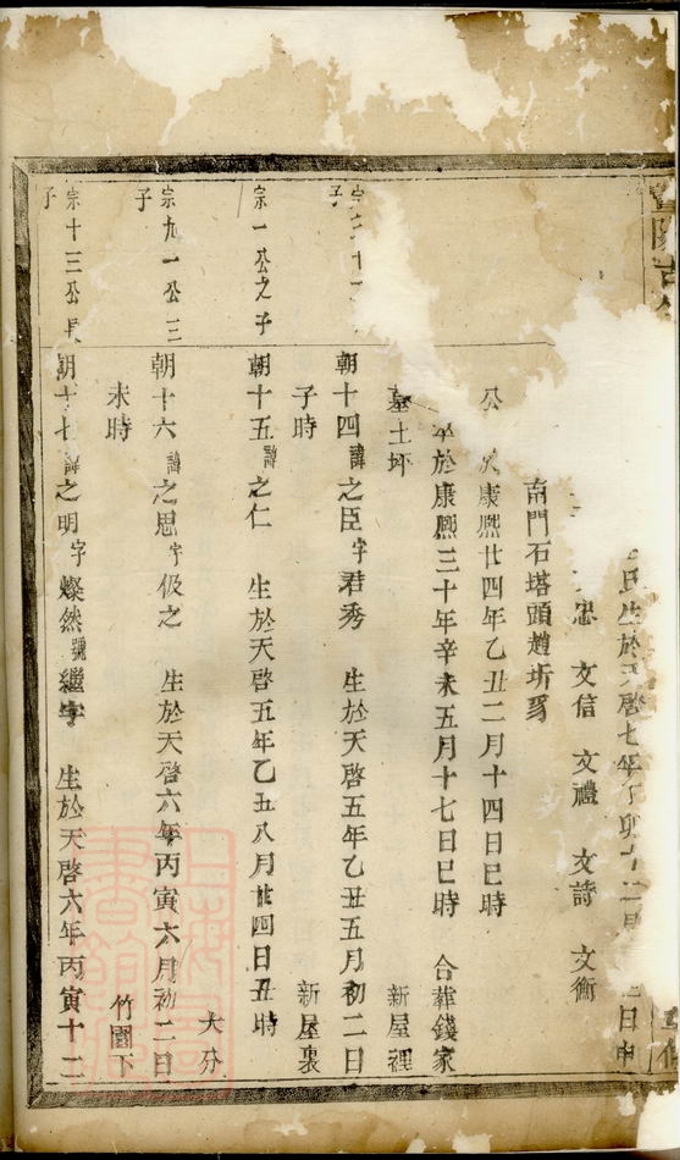 氏生於天啓七年丁卯十二月 日申
忠 文信 文禮 文詩 文衡
南門石塔頭趙圻
公 康熈廿四年乙丑二月十四日巳時
卒於康熈三十年辛未五月十七日巳時 合葬錢家
墓土坪 新屋裡
子
朝十四諱之臣字君秀 生於天啓五年乙丑五月初二日
子時 新屋裏
宗一公之子
朝十五諱之仁 生於天啓五年乙丑八月廿四日丑時
大分
宗九一公三
子
朝十六諱之思字伋之 生於天啓六年丙寅六月初二日
未時 竹園下
宗十三公長
子
朝十七諱之明字燦然號繼宇 生於天啓六年丙寅十二
上海圖書館藏